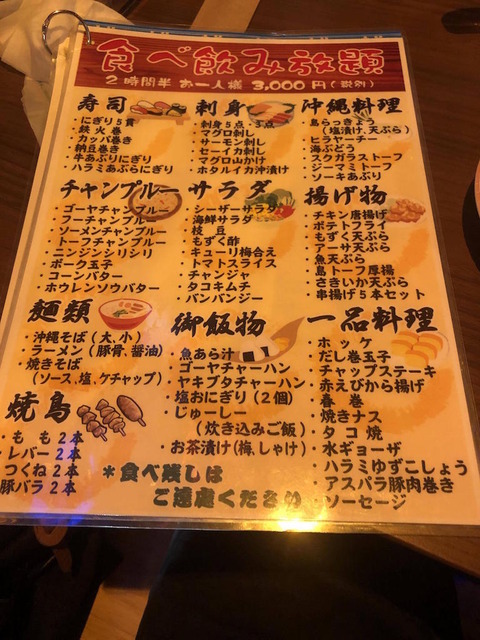 食べ飲み放題
2時間半 お一人様 3,000円(税別)
寿司
・にぎり5貫
・鉄火巻
・カッパ巻き
・納豆巻き
・牛あぶり寿司
・ハラミあぶりにぎり
刺身
・刺身5点・3点
・マグロ刺し
・サーモン刺し
・セーイカ刺し
・マグロ山かけ
・ホタルイカ沖漬け
沖縄料理
・島らっきょう
(塩漬け、天ぷら)
・ヒラヤーチー
・海ぶどう
・スクガラストーフ
・ジーマミトーフ
・ソーキあぶり
チャンプルー
・ゴーヤチャンプルー
・フーチャンプルー
・ソーメンチャンプルー
・トーフチャンプルー
・ニンジンシリシリ
・ポーク玉子
・コーンバター
・ホウレンソウバター
サラダ
・シーザーサラダ
・海鮮サラダ
・枝豆
・もずく酢
・キューリ梅合え
・トマトスライス
・チャンジャ
・タコキムチ
・バンバンジー
揚げ物
・チキン唐揚げ
・ポテトフライ
・もずく天ぷら
・アーサ天ぷら
・魚天ぷら
・島トーフ厚揚
・さきいか天ぷら
・串揚げ5本セット
麺類
・沖縄そば(大、小)
・ラーメン(豚骨、醤油)
・焼きそば
(ソース、塩、ケチャップ)
御飯物
・魚あら汁
・ゴーヤチャーハン
・ヤキブタチャーハン
・塩おにぎり(2個)
・じゅーしー
(炊き込みご飯)
・お茶漬け(梅、しゃけ)
一品料理
・ホッケ
・だし巻玉子
・チャップステーキ
・赤えびから揚げ
・春巻
・焼きナス
・タコ焼
・水ギョーザ
・ハラミゆずこしょう
・アスパラ豚肉巻き
・ソーセージ
焼鳥
・もも2本
・レバー2本
・つくね2本
豚バラ2本
*食べ残しは
ご遠慮ください